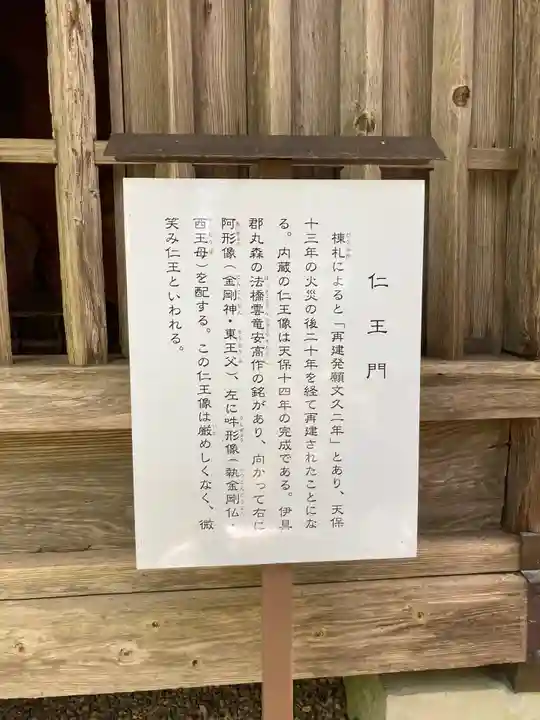 仁王門
棟札によると「再建発願文久二年」とあり、天保
十三年の火災の後二十年を経て再建されたことにな
る。内蔵の仁王像は天保十四年の完成である。伊具
郡丸森の法橋雲竜安高作の銘があり、向かって右に
阿形像(金剛神・東王父)、左に吽形像(執金剛仏・
西王母)を配する。この仁王像は厳めしくなく、微
笑み仁王といわれる。